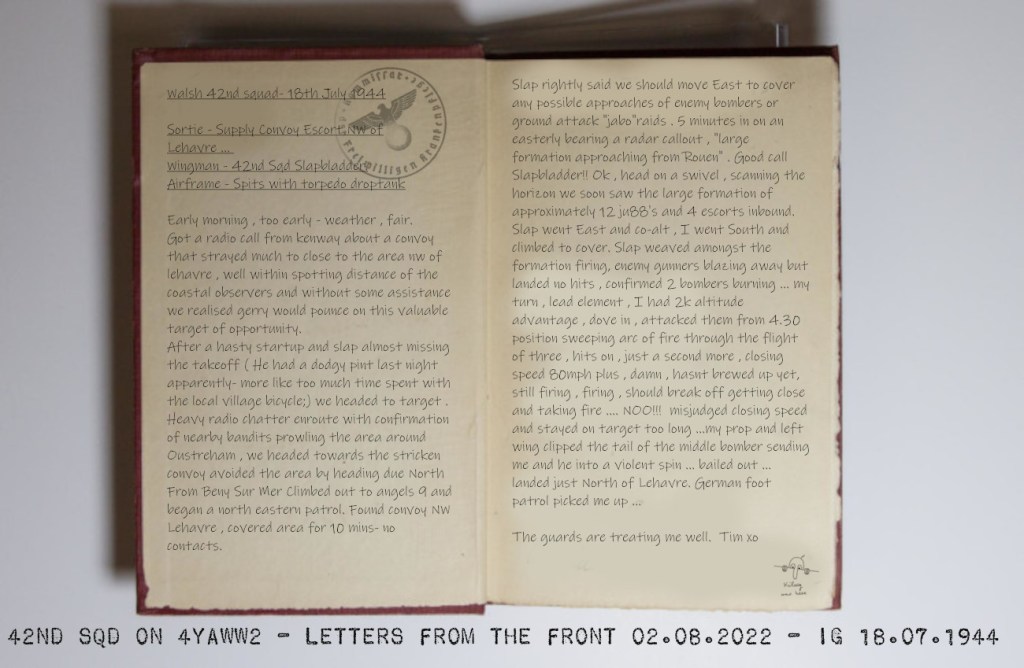 Walsh 42nd squad- 18th July 1944
Sortie - Supply Convoy Escort NW of
Lehavre ...
Wingman - 42nd Sqd Slapbladder
Airframe - Spits with torpedo droptank
Early morning , too early - weather , fair.
Got a radio call from kenway about a convoy
that strayed much to close to the area nw of
lehavre , well within spotting distance of the
coastal observers and without some assistance
we realised gerry would pounce on this valuable
target of opportunity.
After a hasty startup and slap almost missing
the takeoff ( He had a dodgy pint last night
apparently- more like too much time spent with
the local village bicycle;) we headed to target .
Heavy radio chatter enroute with confirmation
of nearby bandits prowling the area around
Oustreham , we headed towards the stricken
convoy avoided the area by heading due North
From Beny Sur Mer Climbed out to angels 9 and
began a north eastern patrol. Found convoy NW
Lehavre , covered area for 10 mins- no
contacts.
Slap rightly said we should move East to cover
any possible approaches of enemy bombers or
ground attack "jabo"raids . 5 minutes in on an
easterly bearing a radar callout , "large
formation approaching from Rouen" . Good call
Slapbladder!! Ok , head on a swivel , scanning the
horizon we soon saw the large formation of
approximately 12 ju88's and 4 escorts inbound.
Slap went East and co-alt , I went South and
climbed to cover. Slap weaved amongst the
formation firing, enemy gunners blazing away but
landed no hits , confirmed 2 bombers burning ... my
turn , lead element , I had 2k altitude
advantage , dove in , attacked them from 4.30
position sweeping arc of fire through the flight
of three , hits on , just a second more , closing
speed 80mph plus , damn , hasnt brewed up yet,
still firing , firing , should break off getting close
and taking fire .... NOO!!! misjudged closing speed
and stayed on target too long ...my prop and left
wing clipped the tail of the middle bomber sending
me and he into a violent spin ... bailed out ...
landed just North of Lehavre. German foot
patrol picked me up ...
The guards are treating me well. Tim xo
42ND SQD ON 4YAWW2 - LETTERS FROM THE FRONT 02.08.2022 - IG 18.07.1944